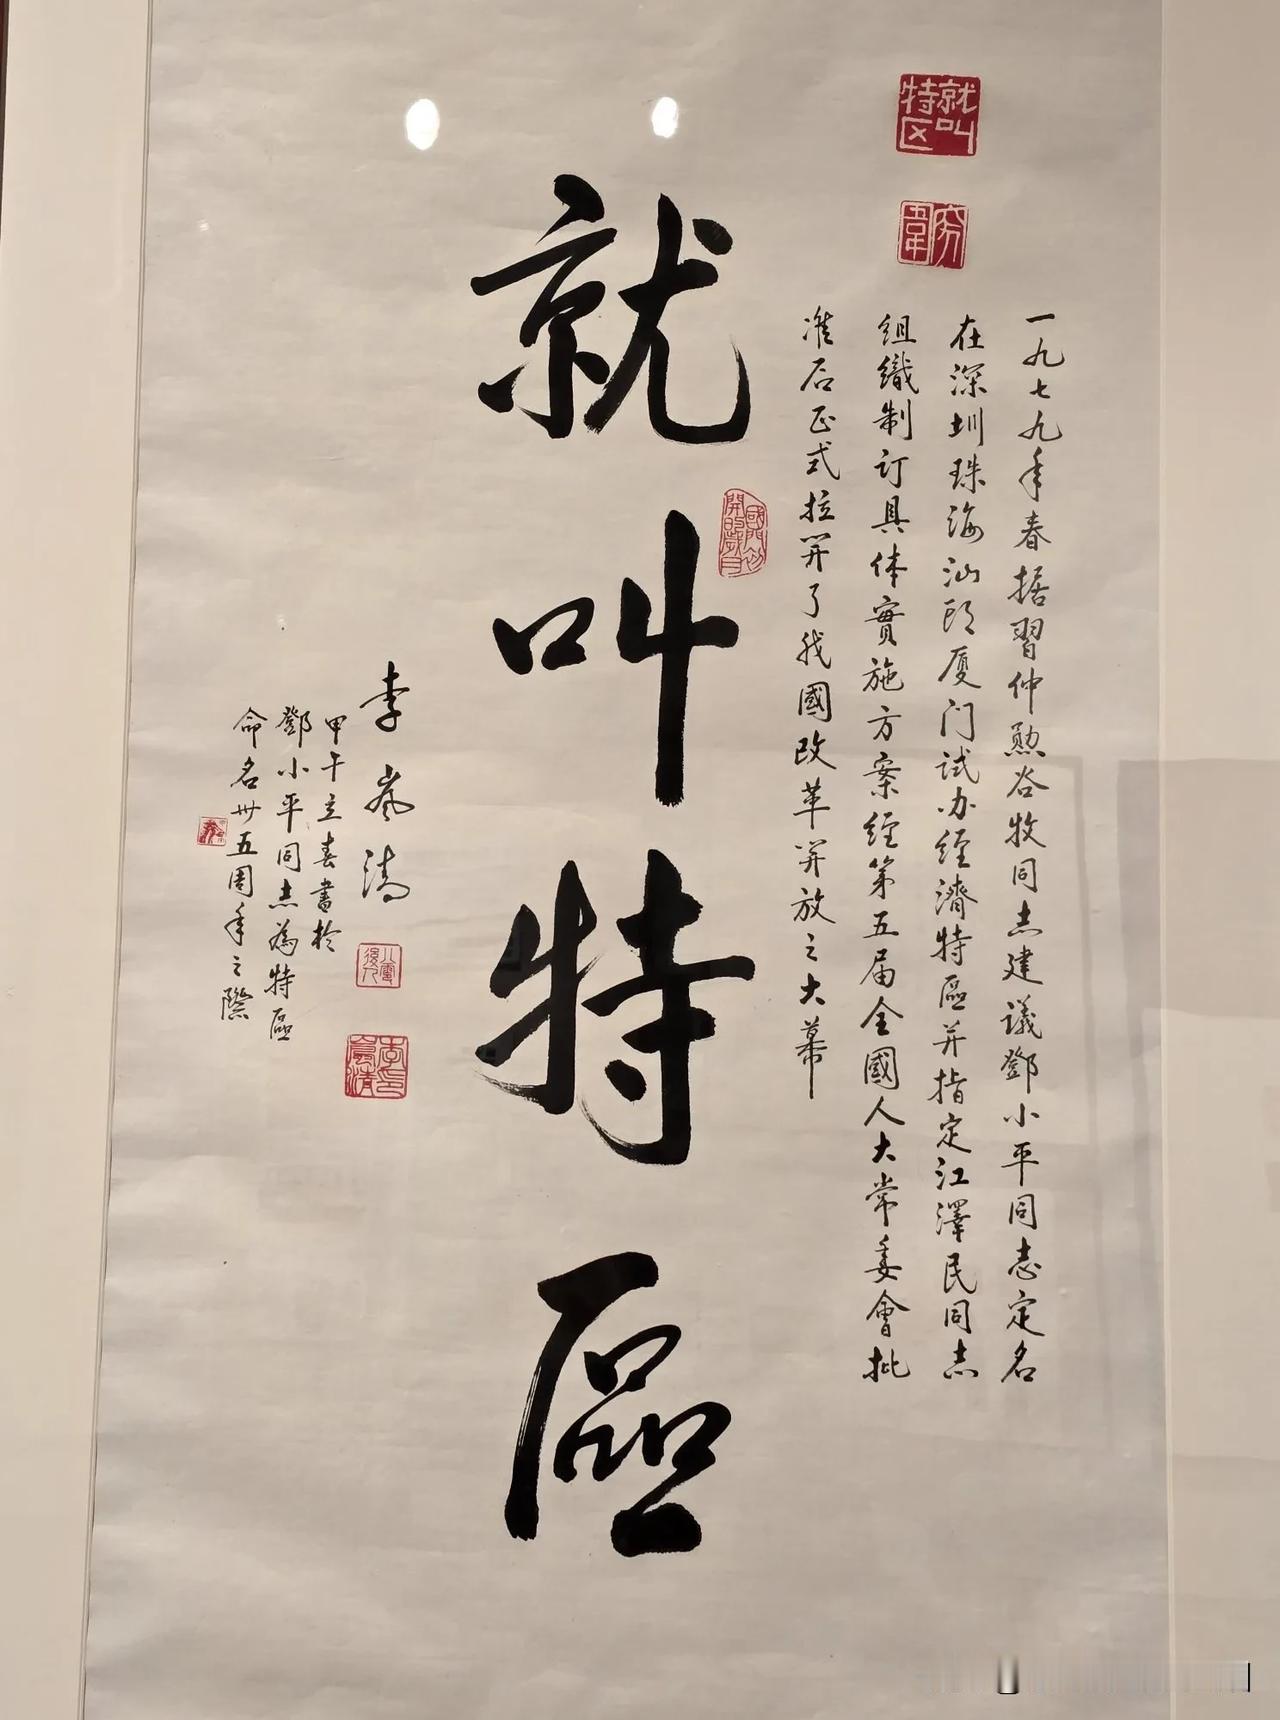 就叫特区
一九七九年春据習仲勲谷牧同志建議鄧小平同志定名
在深圳珠海汕头厦门试办经濟特區并指定江澤民同志
组織制订具体實施方案经第五届全國人大常委會批
准后正式拉开了我國改革开放之大幕
國門初開的歲月
就叫特區
李嵐清
李嵐清印
甲午立春書於
鄧小平同志為特區
命名卅五周年之際